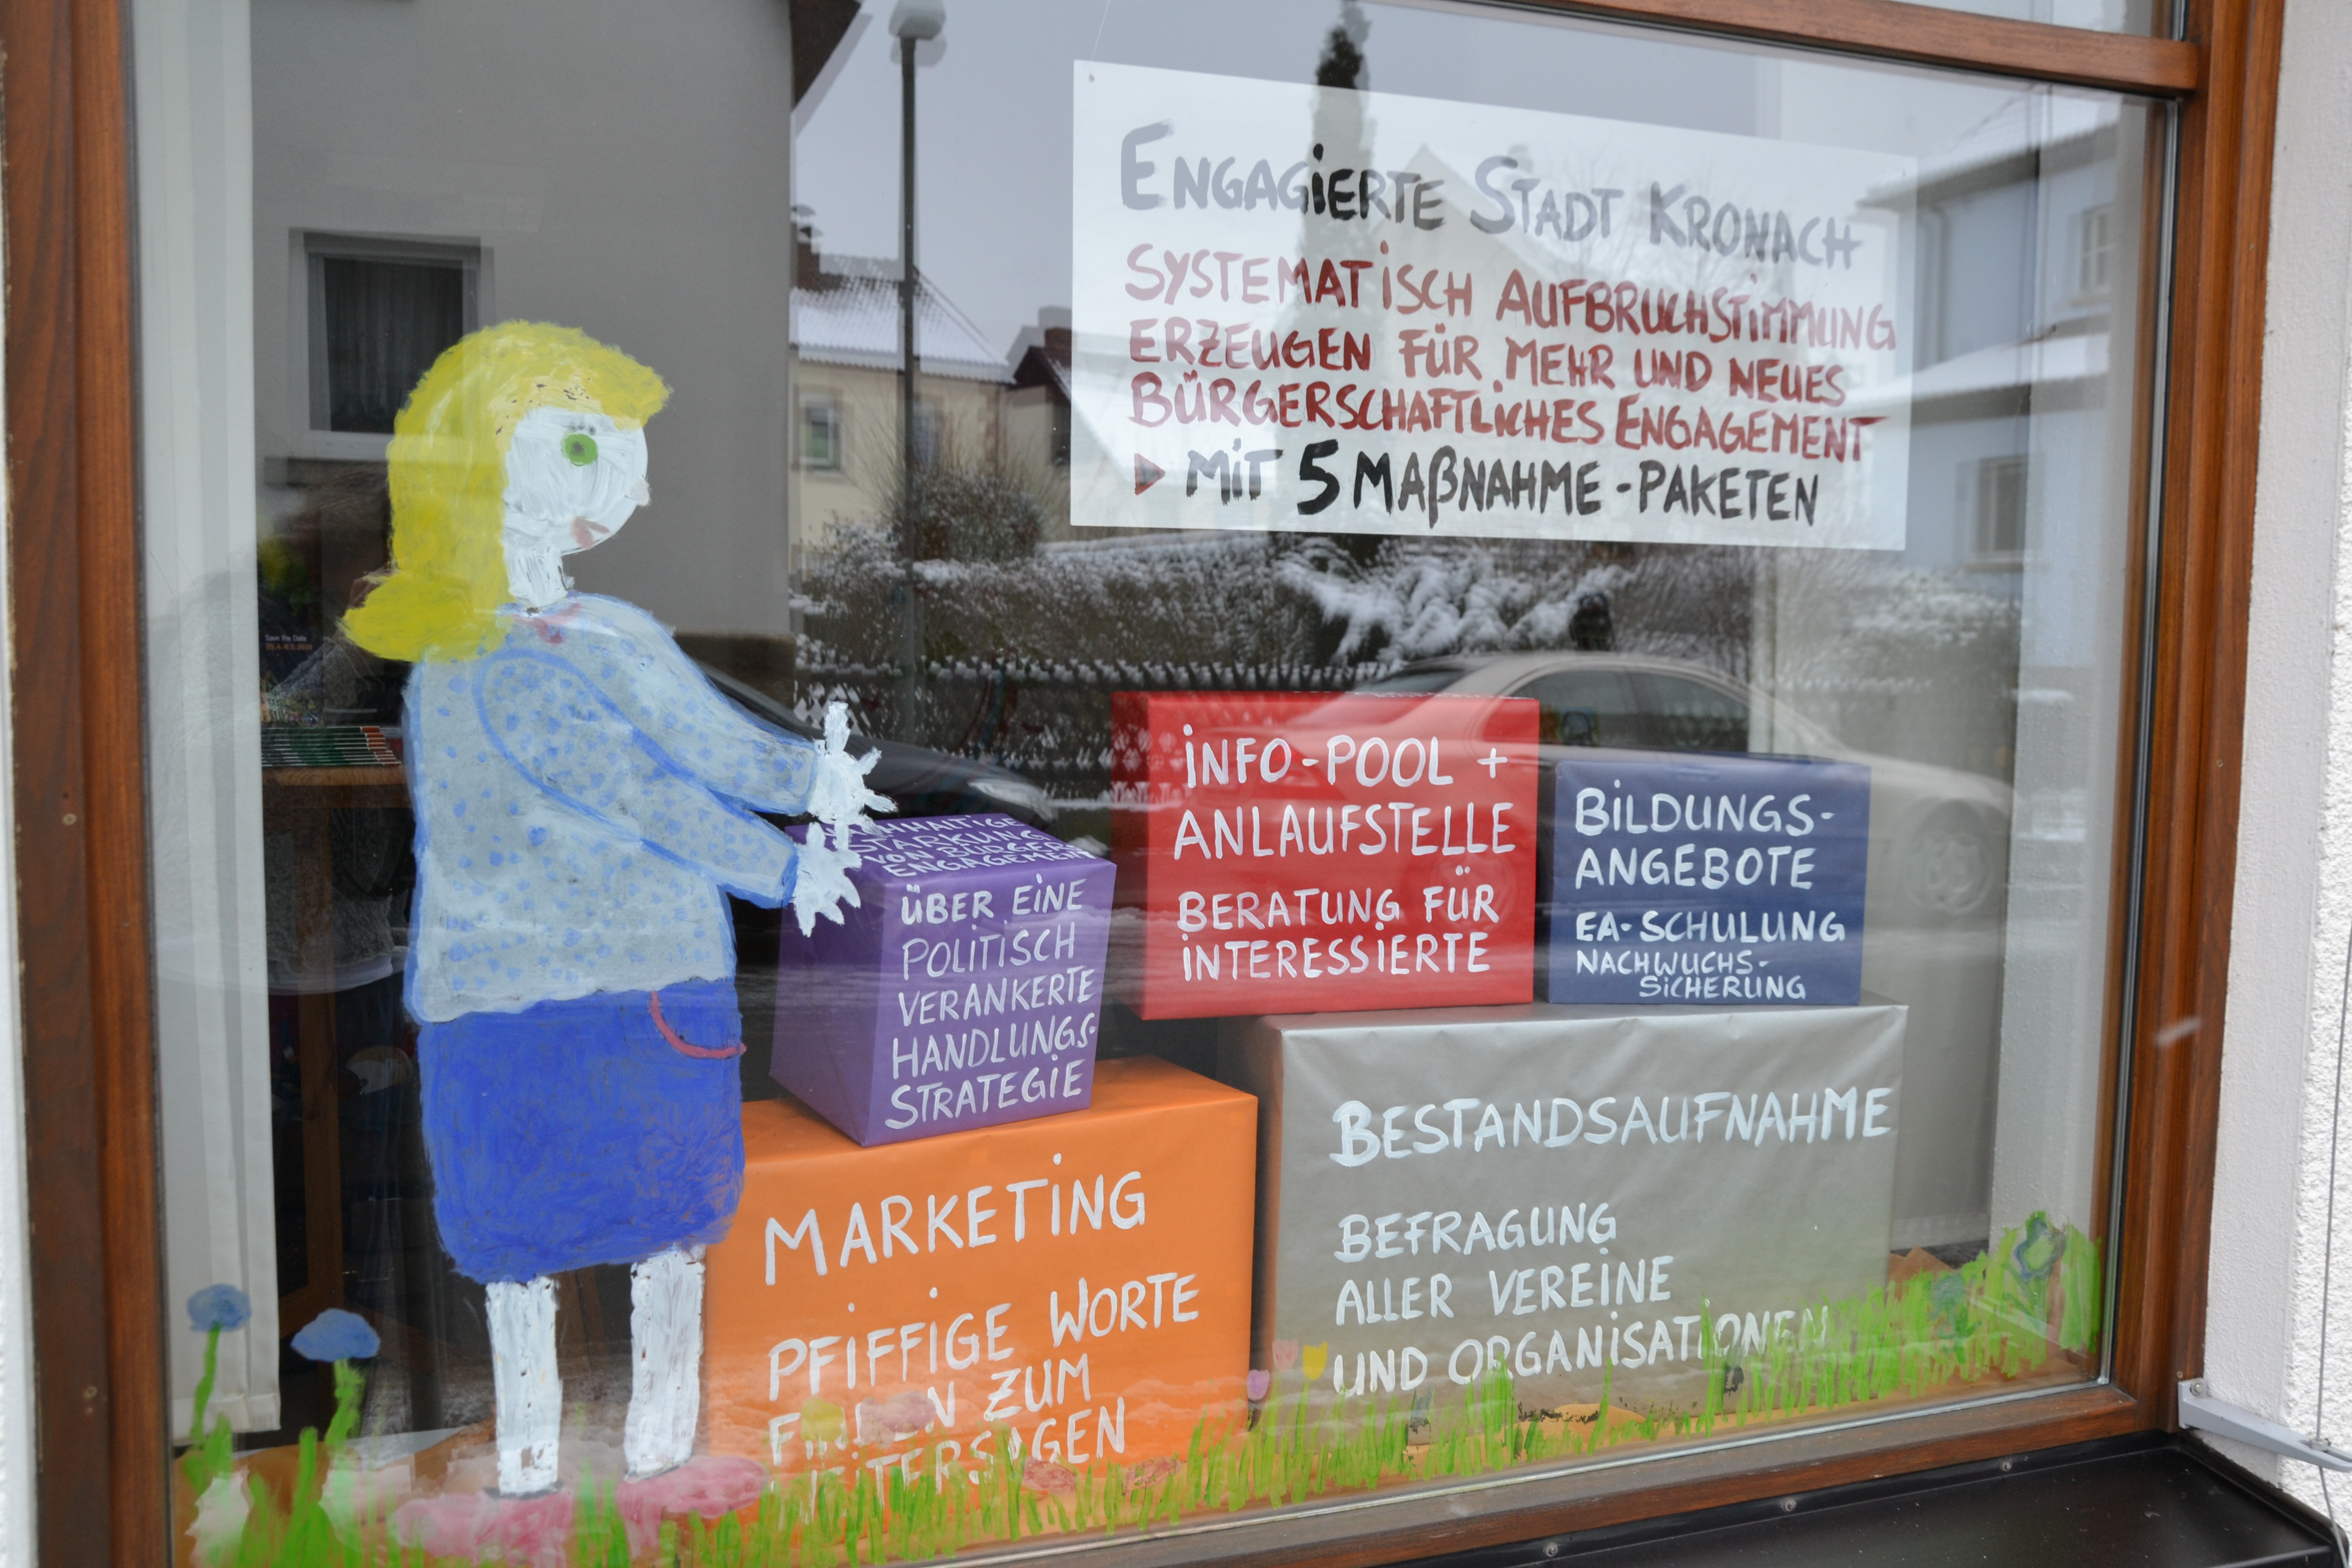 ENGAGIERTE STADT KRONACH
SYSTEMATISCH AUFBRUCHSTIMMUNG
ERZEUGEN FÜR MEHR UND NEUES
BÜRGERSCHAFTLICHES ENGAGEMENT
▶ MIT 5 MAßNAHME-PAKETEN
Save the Date
STÄRKUNG
VON BÜRGER
ENGAGEMENT
ÜBER EINE
POLITISCH
VERANKERTE
HANDLUNGS-
STRATEGIE
INFO-POOL +
ANLAUFSTELLE
BERATUNG FÜR
INTERESSIERTE
BILDUNGS-
ANGEBOTE
EA-SCHULUNG
NACHWUCHS-
SICHERUNG
MARKETING
PFIFFIGE WORTE
ZUM
WEITERSAGEN
BESTANDSAUFNAHME
BEFRAGUNG
ALLER VEREINE
UND ORGANISATIONEN